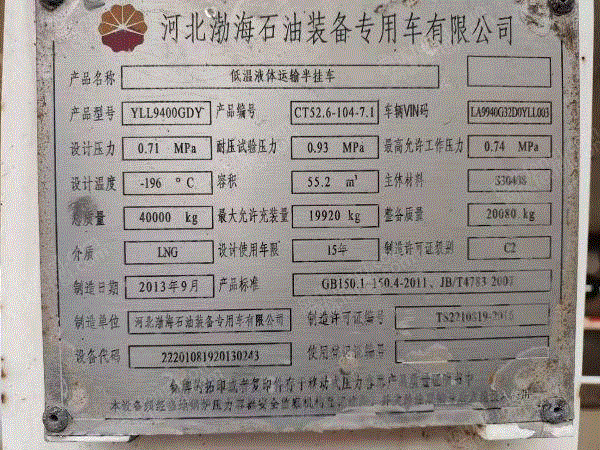 河北渤海石油装备专用车有限公司
产品名称 低温液体运输半挂车
产品型号 YLL9400GDY 产品编号 CT52.6-104-7.1 车辆VIN码 LA9940G32D0YLL003
设计压力 0.71 MPa 耐压试验压力 0.93 MPa 最高允许工作压力 0.74 MPa
设计温度 -196 °C 容积 55.2 m³ 主体材料 S30408
总质量 40000 kg 最大允许充装量 19920 kg 整备质量 20080 kg
介质 LNG 设计使用年限 15年 制造许可证级别 C2
制造日期 2013年9月 产品标准 GB150.1-150.4-2011、JB/T4783-2007
制造单位 河北渤海石油装备专用车有限公司 制造许可证编号 TS2210819-2016
设备代码 22201081920130243 使用登记证编号